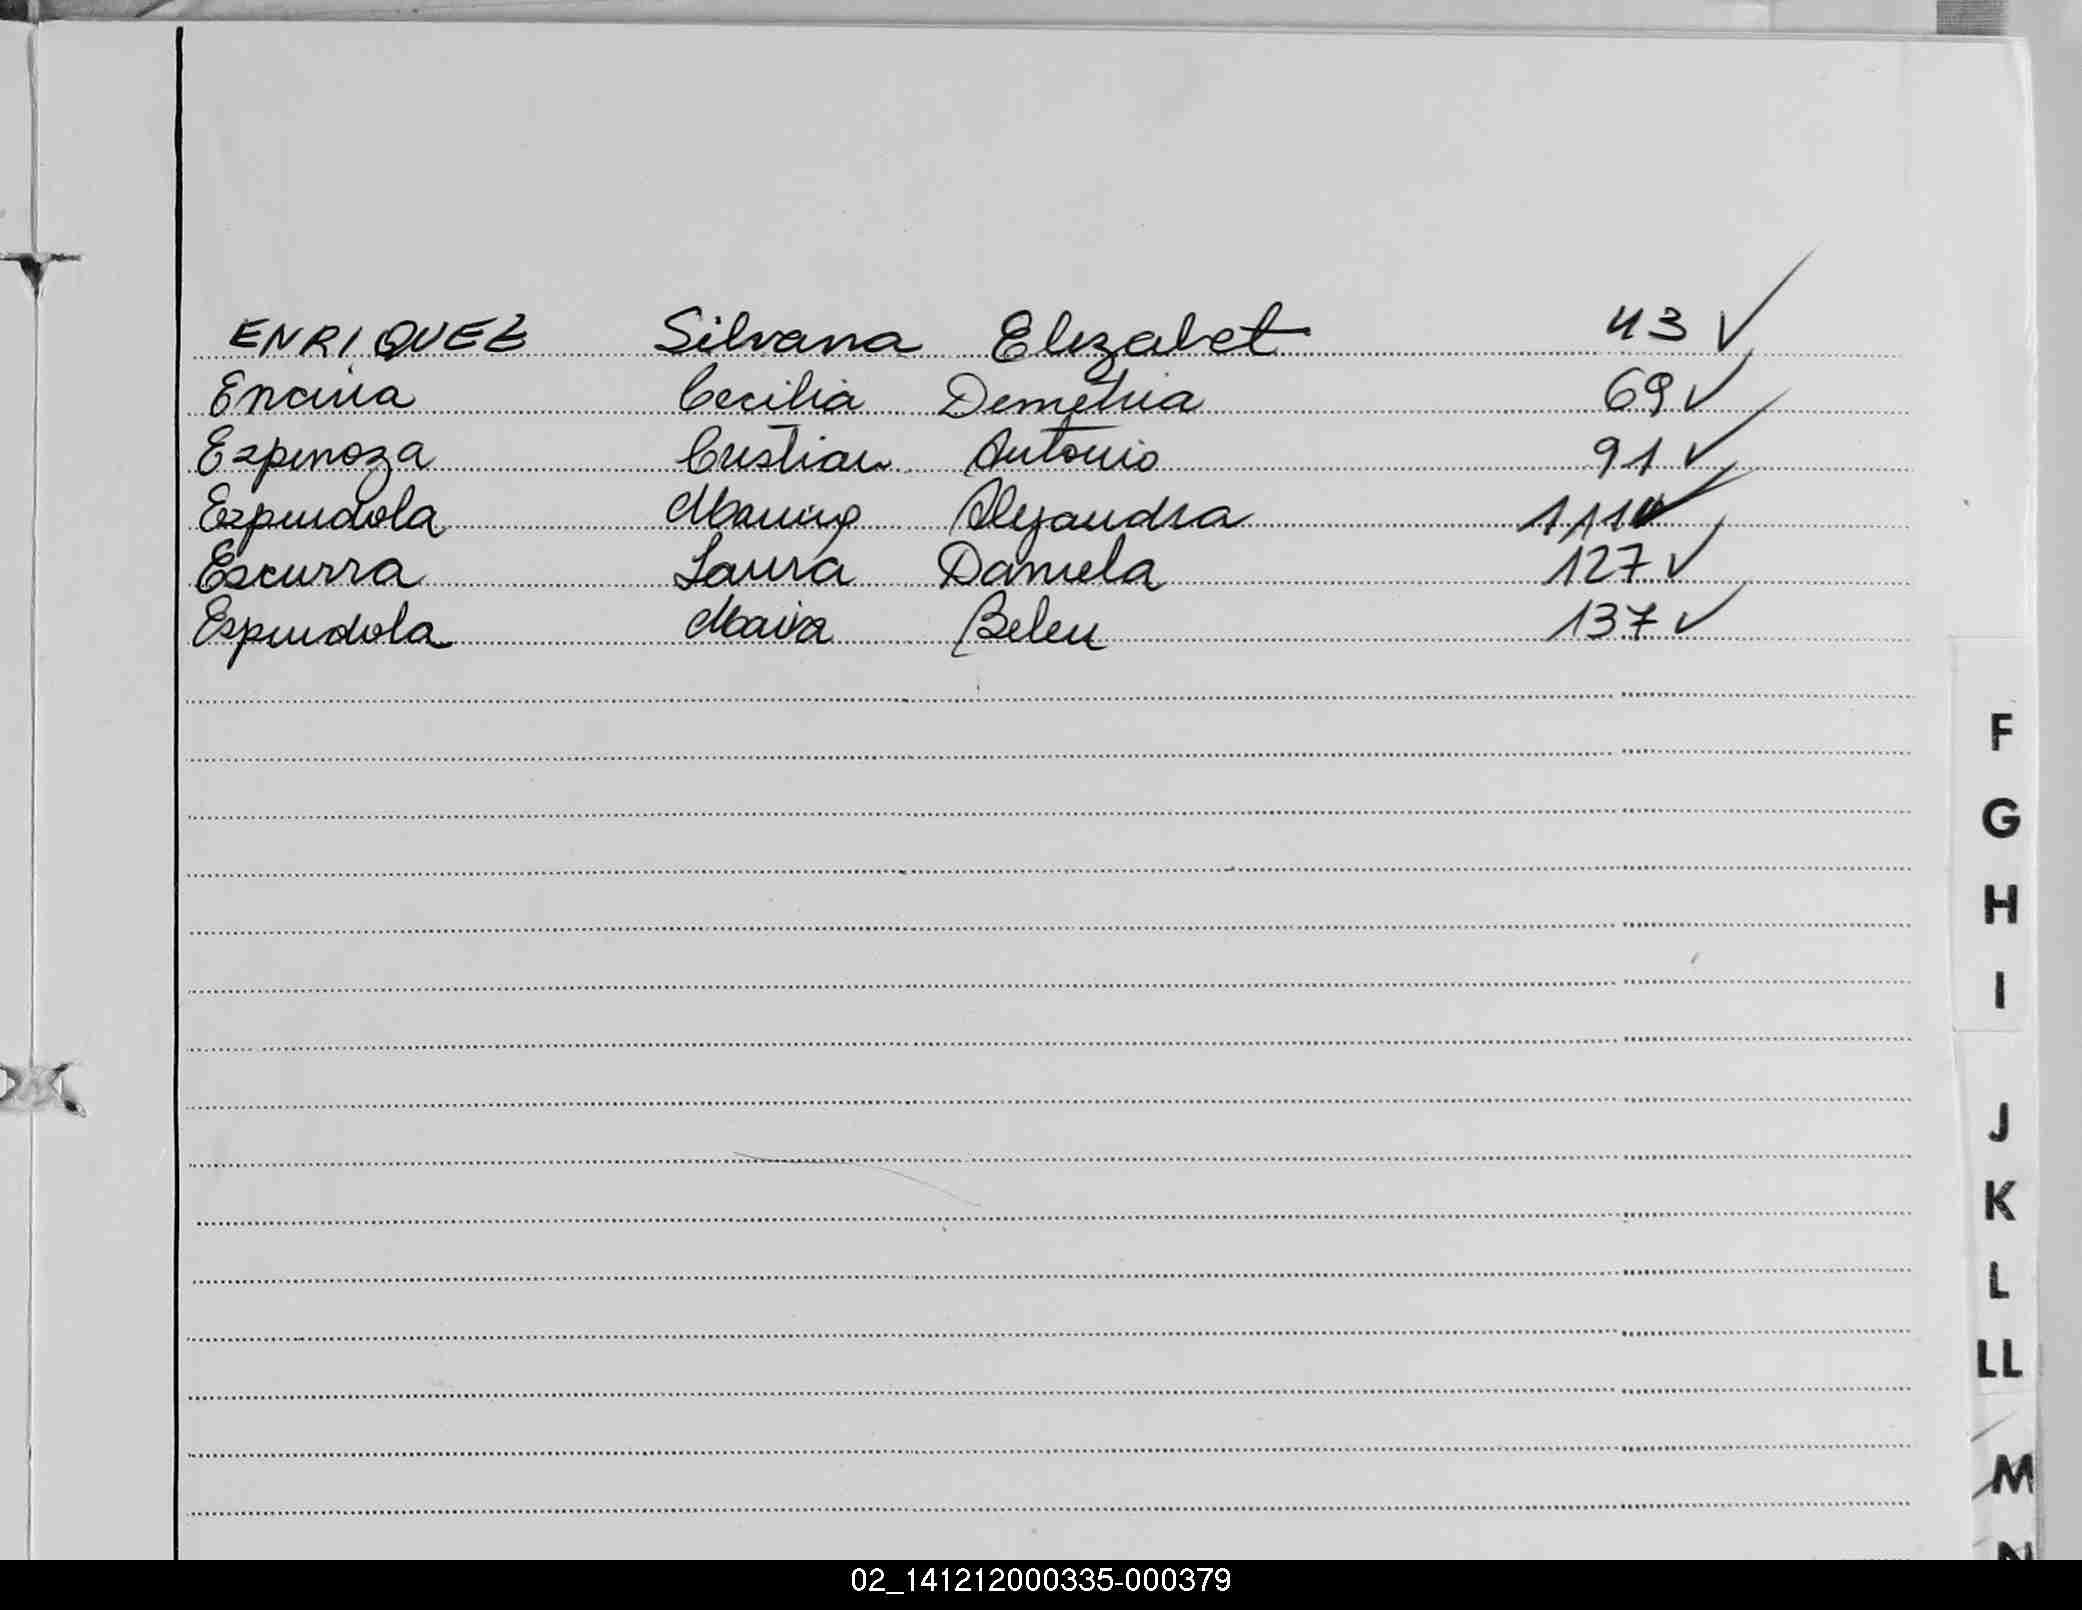 ENRIQUEZ Silvana Elizabet 43 ✓
Encina Cecilia Demetria 69 ✓
Espinoza Cristian Antonio 91 ✓
Espindola Alejandra 111 ✓
Escurra Laura Daniela 127 ✓
Espindola Maira Belen 137 ✓
F
G
H
I
J
K
L
LL
M
N
02_141212000335-000379